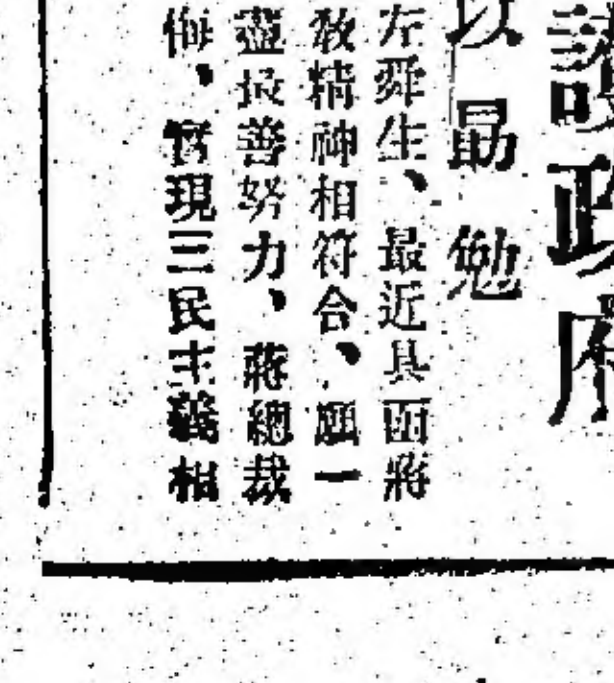 護政府
以勗勉
左舜生、最近具函蔣
教精神相符合、願一
盡最善努力、蔣總裁
侮、實現三民主義相